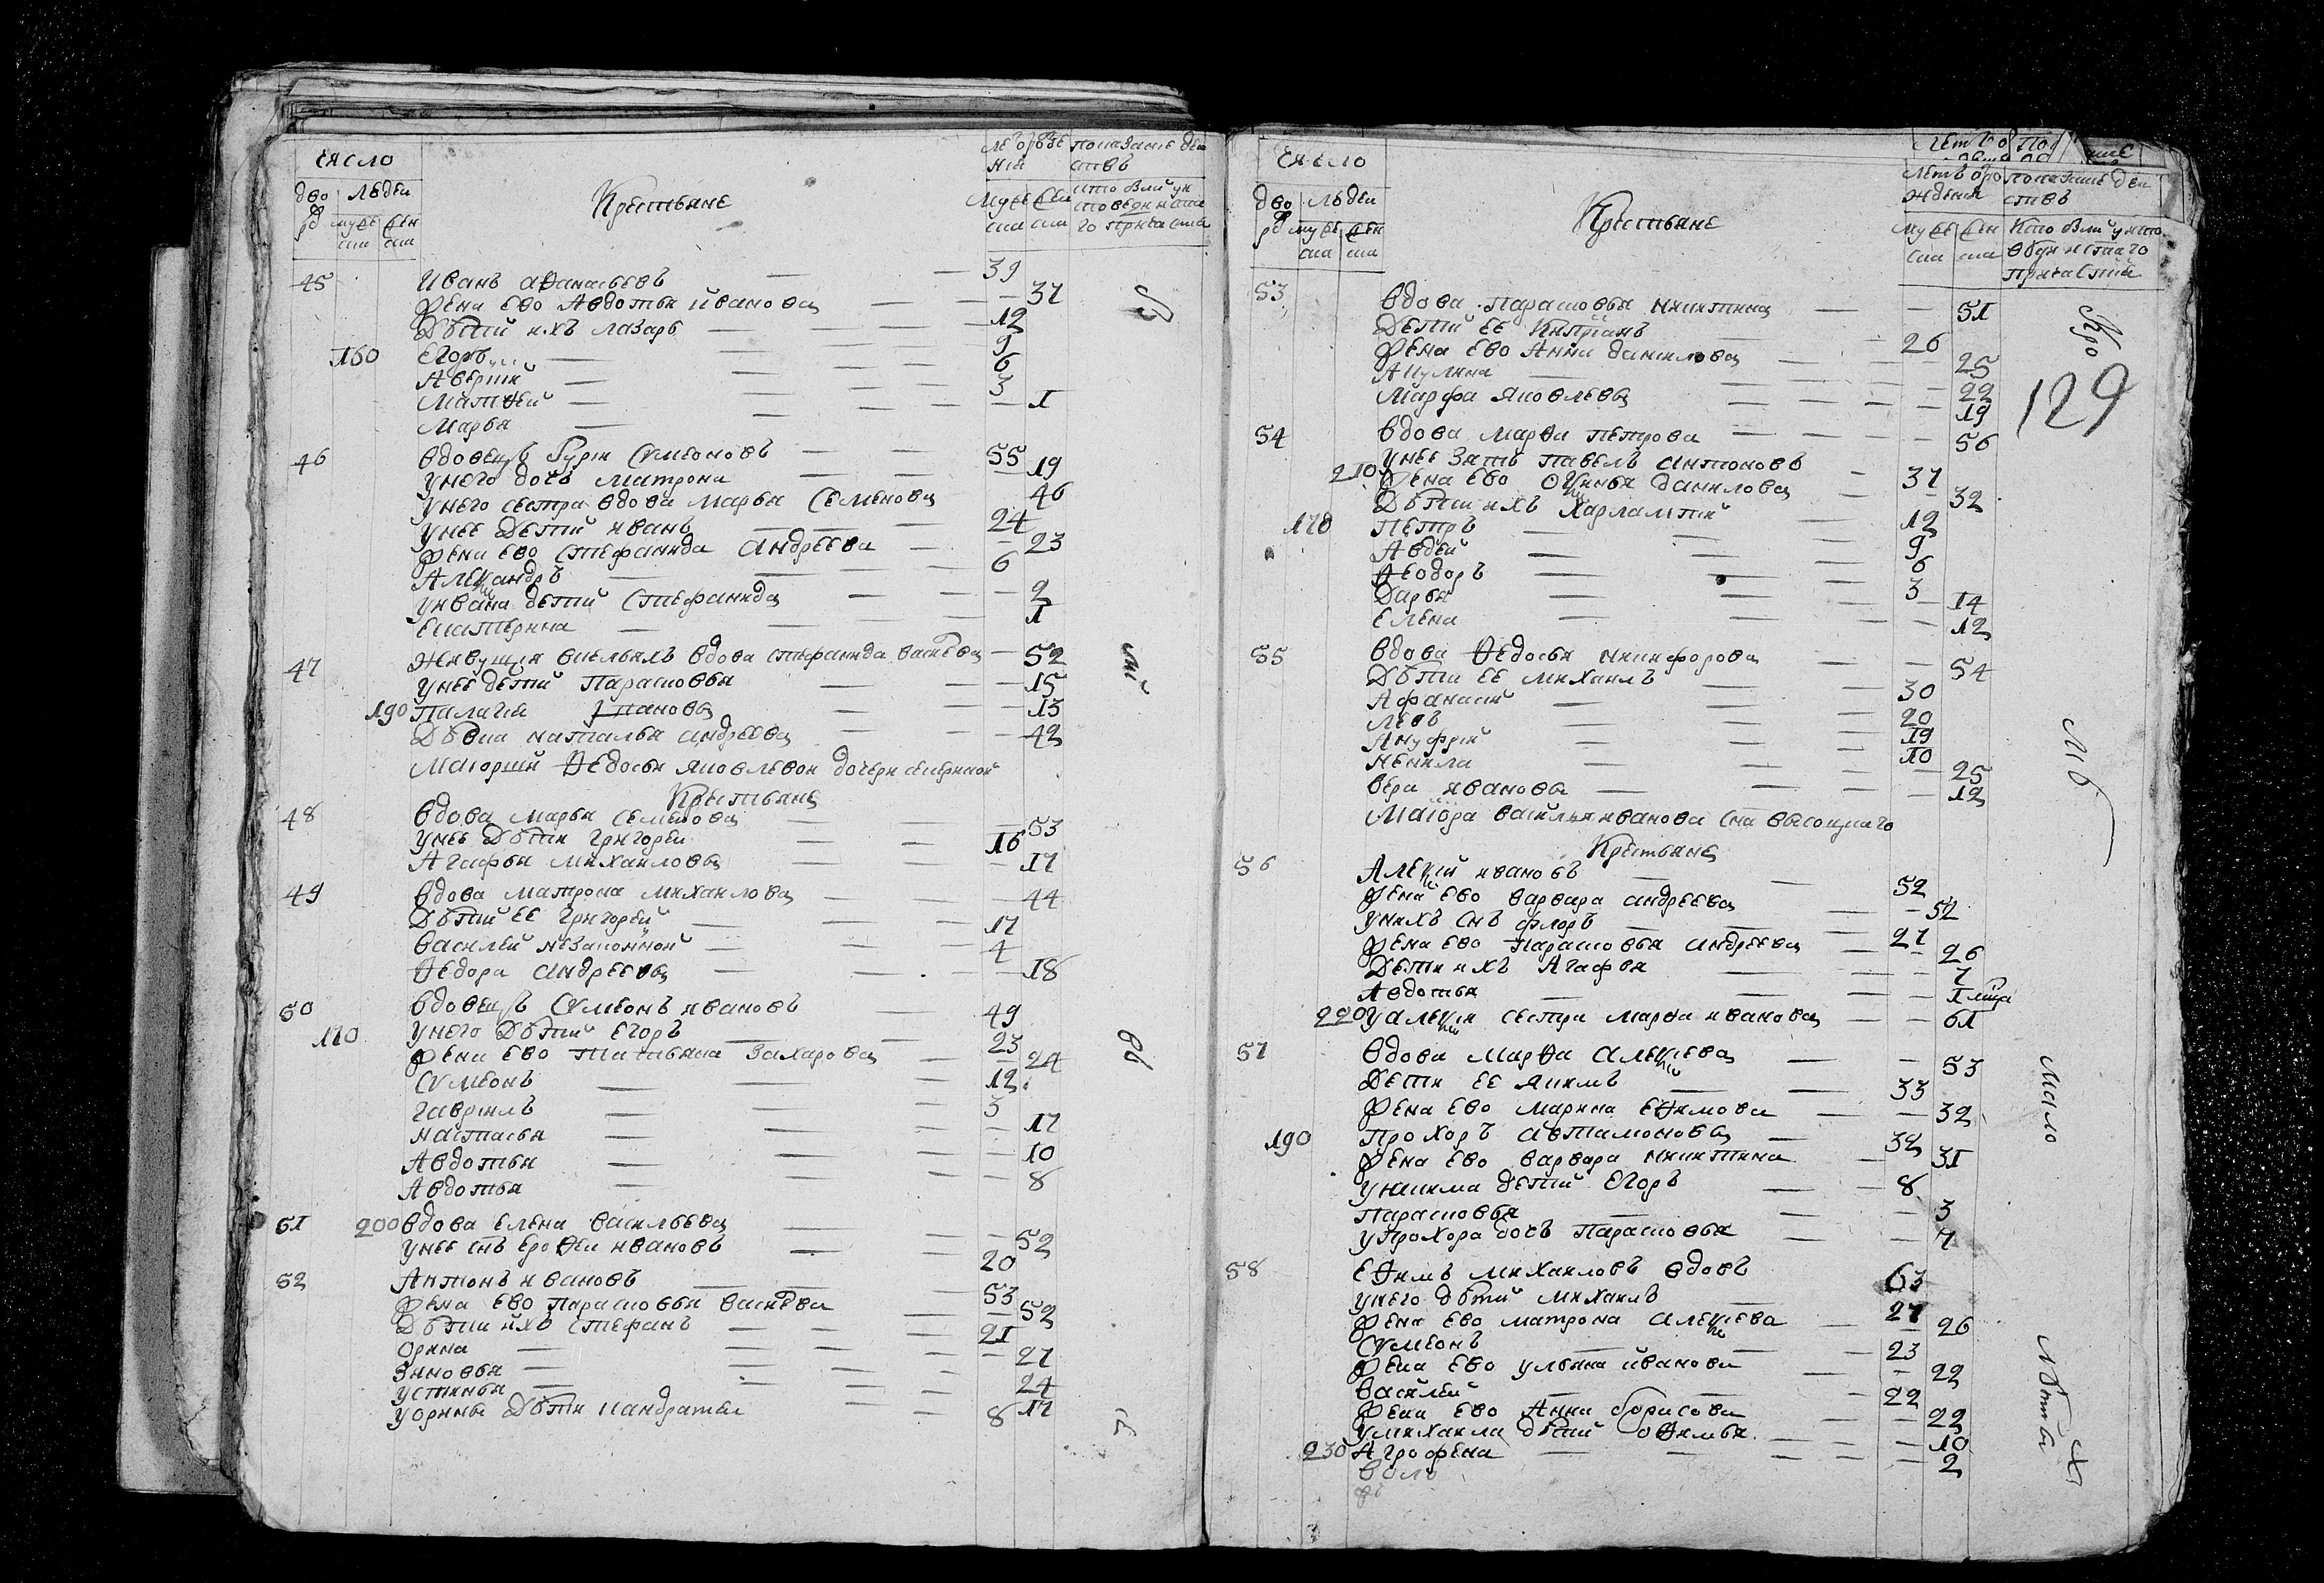 число
дво ръ
людеи
муже ска
жен ска
Крестьяне
показание дѣи ствъ
45 Иванъ аѳанасьевъ 39
жена ево Авдотья иванова 37
Дѣтий ихъ лазарь 12
160 Егоръ 9
Аверкий 6
Матѳеи 3
Марья 1
46 вдовецъ Гурии Сѵмеоновъ 55
унего дочь матрона 19
унего сестра вдова марья Семенова 46
унее Детий иванъ 24
жена ево стефанида андреева 23
Алеѯандръ 6
уивана детий Стефанида 2
екатерина 1
47 живущая вкельяхъ вдова стефанида васиева 52
унее детий Парасковья 15
190 палагия 13
Дѣвка наталья андреева 42
Маіорши Ѳедосьи яковлевои дочери
Крестьяне
48 вдова марья семенова 53
унее Дѣтии григореи 16
Агафья михаилова 17
49 вдова матрона михаилова 44
Дѣтий ее григореи 17
василеи незаконной 4
Ѳедора андреева 18
50 вдовецъ Сѵмеонъ ивановъ 49
170 унего Дѣтий егоръ 23
жена ево татьяна захарова 24
Сѵмеонъ 12
гаврилъ 3
настасья 17
Авдотья 10
Авдотья 8
51 200 вдова елена васильева 52
унее снъ ероѳеи ивановъ 20
52 Антонъ ивановъ 53
жена ево парасковья васиева 52
Дѣтии ихъ стефанъ 21
орина 27
зиновья 24
устинья 17
уорины Дѣтии кандратеи 8
число
дво ръ
людеи
муже ска
жен ска
Крестьяне
летъ оро ждения
показание дѣи ствъ
129
53 вдова парасковья никитина 51
Детий ее Киприанъ 26
жена ево Анна данилова 25
Акулина 22
марфа яковлева 19
54 вдова марѳа петрова 56
унее зять павелъ антоновъ 37
210 жена ево данилова 32
Дѣтии ихъ харлампий 12
170 петръ 9
Авдеи 6
Ѳеодоръ 3
Дарья 14
елена 12
55 вдова Ѳедосья никифорова 54
Дѣтии ее михаилъ 30
Афанасии 20
левъ 19
Ануфрии 10
ненила 25
вера иванова 12
Маіора василья иванова сна высоцкаго
Крестьяне
56 Алеѯий ивановъ 52
жена ево варвара андреева 52
унихъ снъ флоръ 27
жена ево парасковья андреева 26
Детии ихъ Агафья 7
Авдотья 1
220 уалеѯия сестра марѳа иванова 61
57 вдова Марѳа алеѯиева 53
Детии ее якимъ 33
жена ево марина еѳимова 32
190 прохоръ автамоновъ 32
жена ево варвара никитина 31
уякима детий Егоръ 8
парасковья 3
упрохора дочь парасковья 7
58 еѳимъ михаиловъ вдовъ 63
унего дѣтий михаилъ 27
жена ево матрона алеѯиева 26
Сѵмеонъ 23
жена ево ульяна иванова 22
василеи 22
жена ево Анна борисова 22
умихаила дѣтий 10
230 Агрофена 2